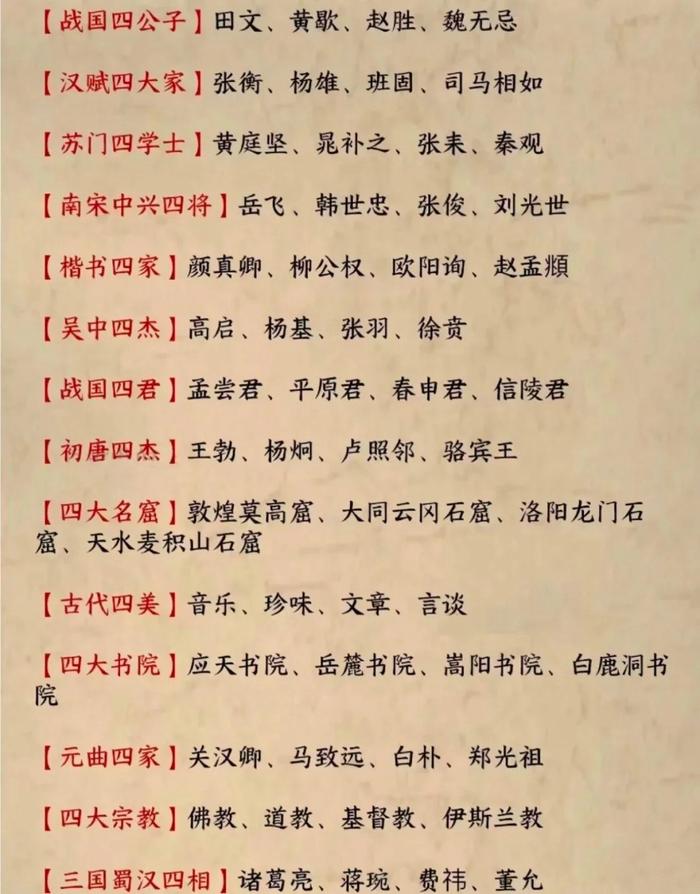 【战国四公子】田文、黄歇、赵胜、魏无忌
【汉赋四大家】张衡、杨雄、班固、司马相如
【苏门四学士】黄庭坚、晁补之、张耒、秦观
【南宋中兴四将】岳飞、韩世忠、张俊、刘光世
【楷书四家】颜真卿、柳公权、欧阳询、赵孟頫
【吴中四杰】高启、杨基、张羽、徐贲
【战国四君】孟尝君、平原君、春申君、信陵君
【初唐四杰】王勃、杨炯、卢照邻、骆宾王
【四大名窟】敦煌莫高窟、大同云冈石窟、洛阳龙门石
窟、天水麦积山石窟
【古代四美】音乐、珍味、文章、言谈
【四大书院】应天书院、岳麓书院、嵩阳书院、白鹿洞书
院
【元曲四家】关汉卿、马致远、白朴、郑光祖
【四大宗教】佛教、道教、基督教、伊斯兰教
【三国蜀汉四相】诸葛亮、蒋琬、费祎、董允